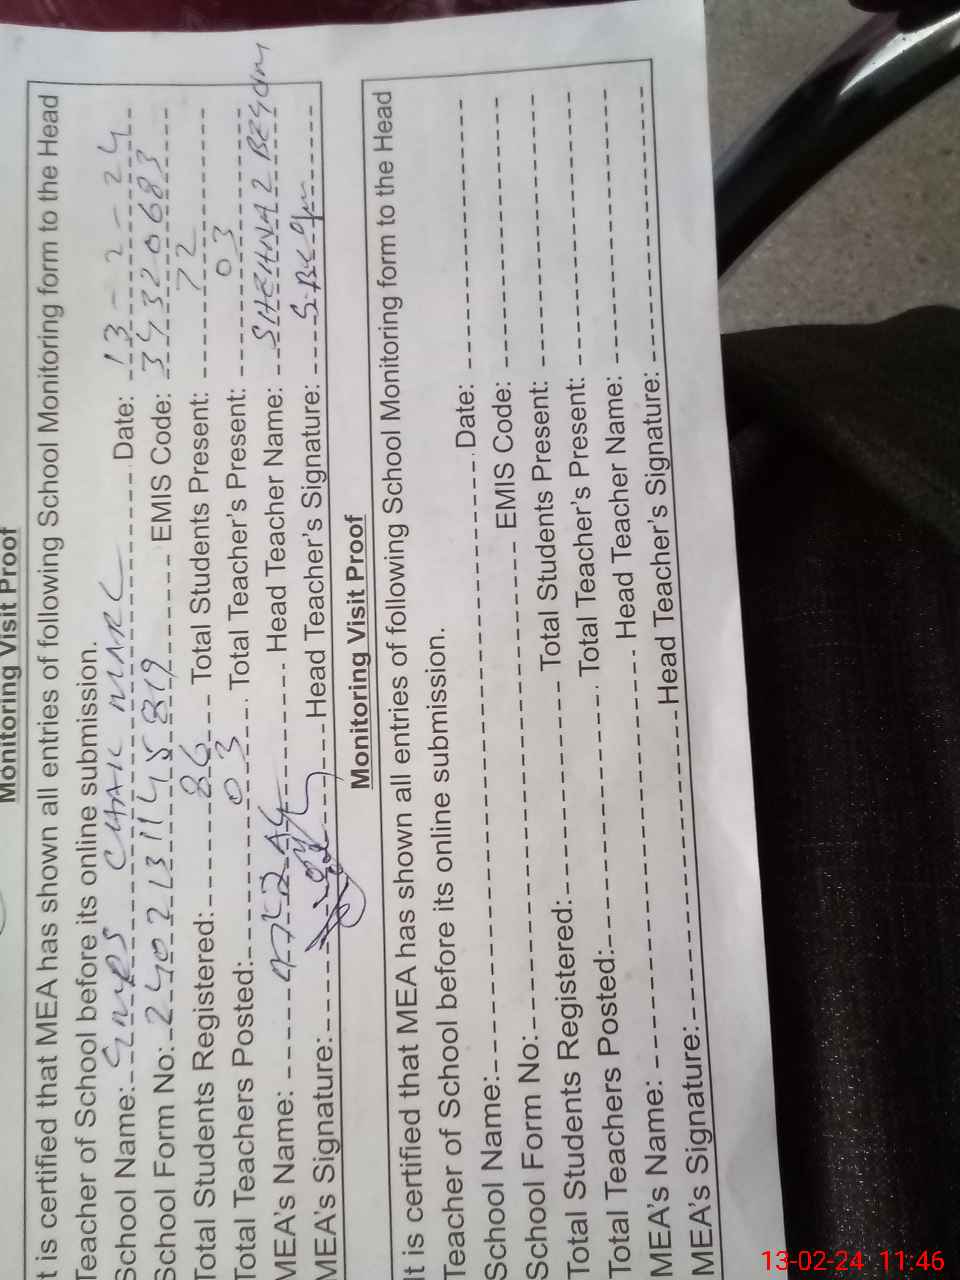 Monitoring Visit Proof
t is certified that MEA has shown all entries of following School Monitoring form to the Head
Teacher of School before its online submission.
School Name: GMPS CHAK MARL Date: 13-2-24
School Form No: EMIS Code: 37320683
Total Students Registered: 86 Total Students Present: 72
Total Teachers Posted: 03 Total Teacher's Present: 03
MEA's Name: Head Teacher Name: SHEHNAZ BEGUM
MEA's Signature: Head Teacher's Signature: S.Begum
Monitoring Visit Proof
It is certified that MEA has shown all entries of following School Monitoring form to the Head
Teacher of School before its online submission.
School Name: Date:
School Form No: EMIS Code:
Total Students Registered: Total Students Present:
Total Teachers Posted: Total Teacher's Present:
MEA's Name: Head Teacher Name:
MEA's Signature: Head Teacher's Signature:
13-02-24 11:46